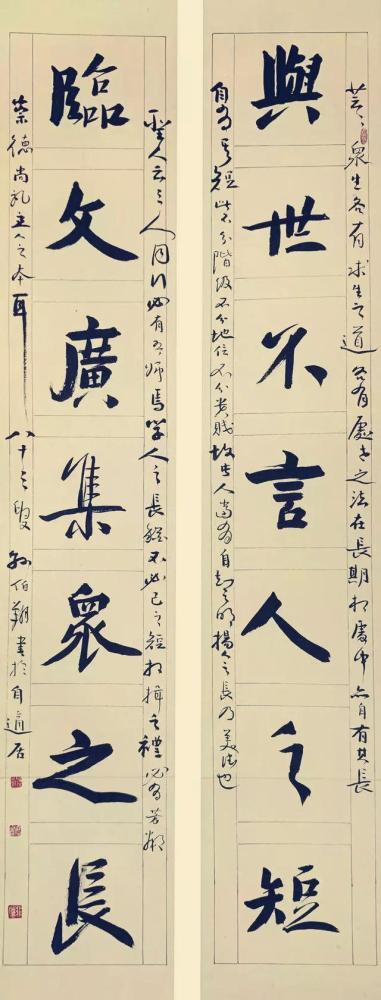 芸〻衆生各有求生之道各有處世之法在長期相處中亦自有其長
與世不言人之短
自有其短此不分階級不分地位不分貴賤故人當有自知之明揚人之長乃美德也
聖人云三人同行必有吾師焉學人之長不必己之短相揖之禮必有芳鄰
臨文廣集衆之長
崇德尚礼立人之本耳 八十三叟 孙伯翔書於自適居